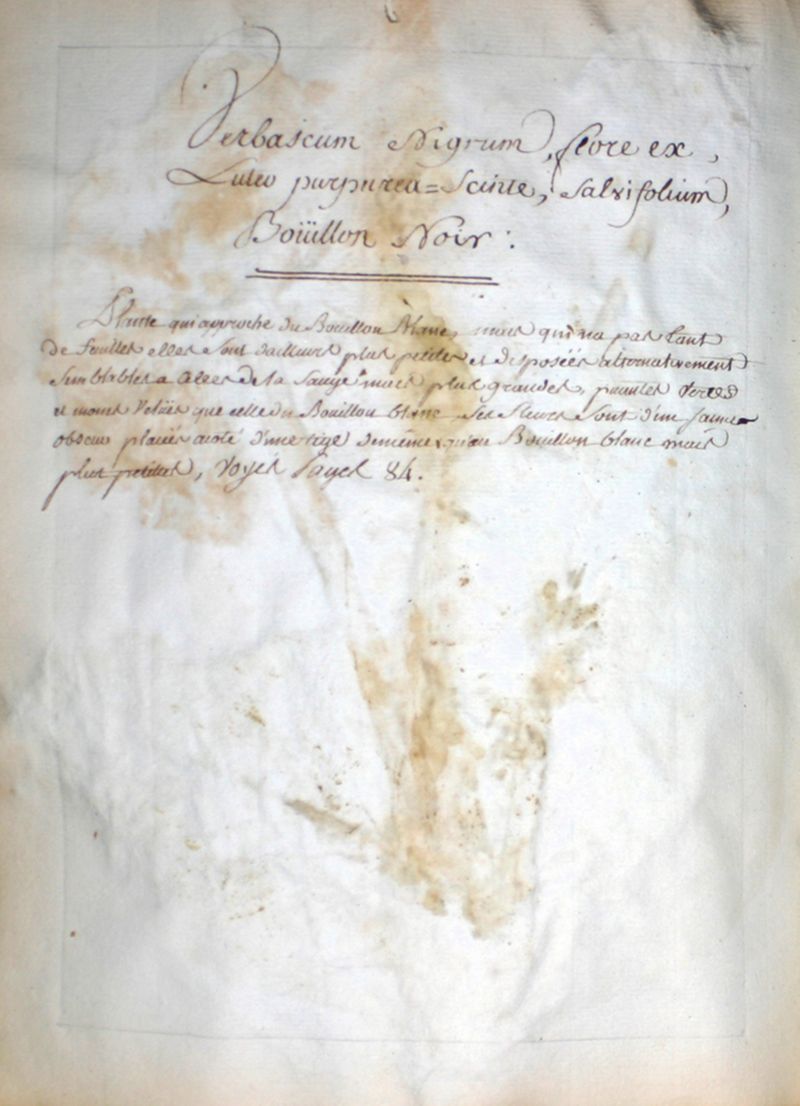 Verbascum Nigrum, flore ex,
Luteo purpurea=Scinte, Salvifolium,
Boüillon Noir:
Plante qui approche du Bouillon Blanc, mais qui na pas tant
de feuilles elles sont dailleurs plus petites et disposées alternativement
Semblables a celles de la Sauge mais plus grandes, pointues vertes
et moins velües que celle du Bouillon blanc Ses fleurs Sont d'un jaune
obscur placées acoté d'une tige de même qu'au Bouillon blanc mais
plus petittes, Voyés pages 84.